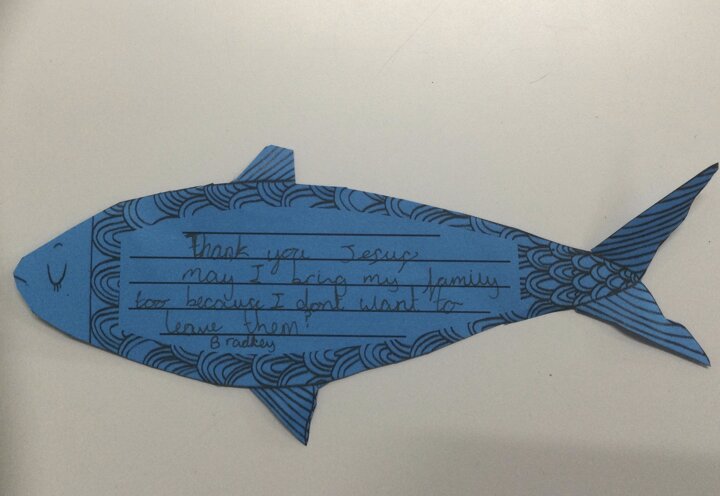 Thank you Jesus
may I bring my family
too because I dont want to
leave them!
Bradkey